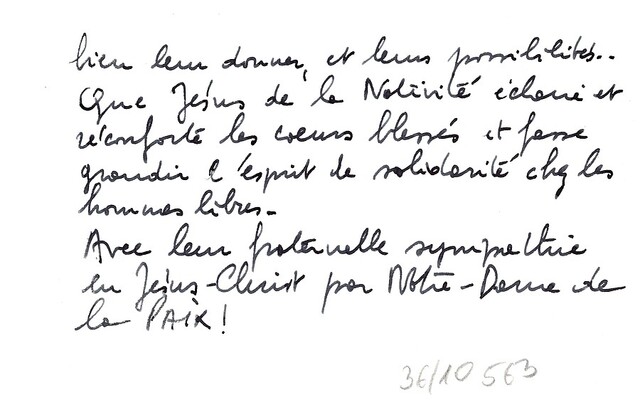 bien leur donner, et leurs possibilités..
Que Jésus de la Nativité éclaire et
réconforte les coeurs blessés et fasse
grandir l'esprit de solidarité chez les
hommes libres.
Avec leur fraternelle sympathie
en Jésus-Christ par Notre-Dame de
la PAIX!
36/10 563